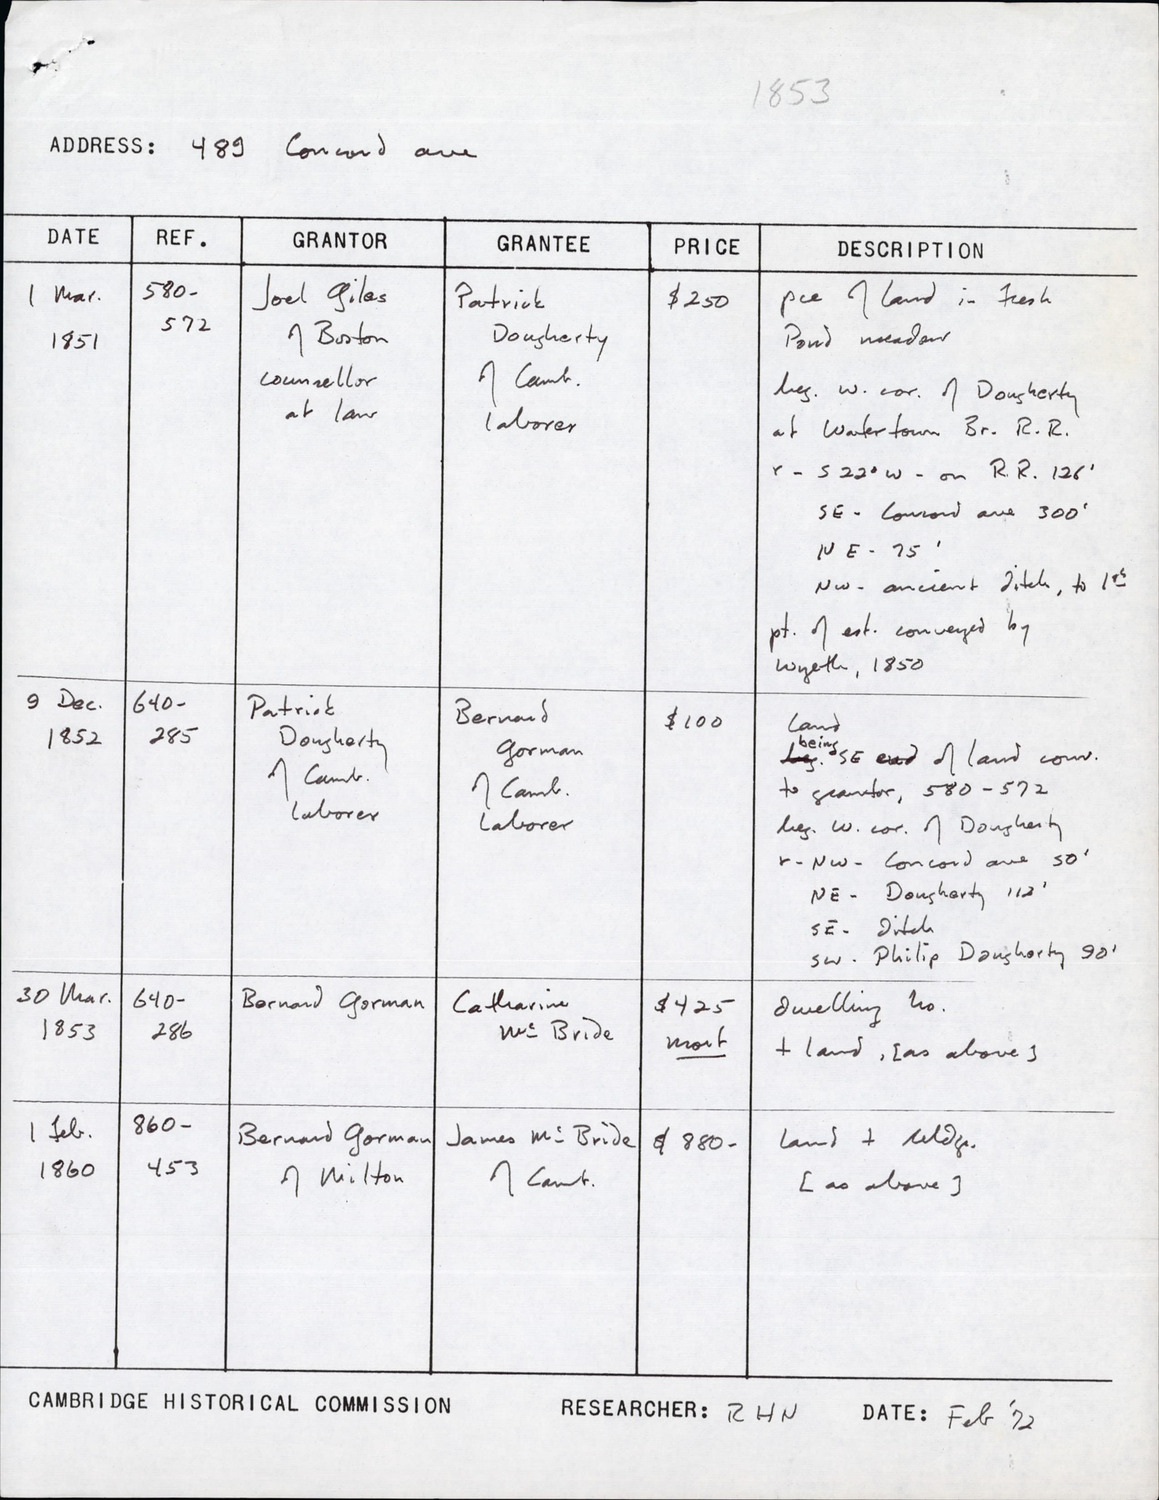 1853
ADDRESS: 489 Concord ave
DATE REF. GRANTOR GRANTEE PRICE DESCRIPTION
1 Mar.
1851
580-
572
Joel Giles
of Boston
counsellor
at law
Patrick
Dougherty
of Camb.
laborer
$250
pce of land in Fresh
Pond meadow
beg. w. cor. of Dougherty
at Watertown Br. R.R.
r - S 22° W - on R.R. 126'
SE - Concord ave 300'
NE - 75'
NW - ancient ditch, to 1st
pt. of est. conveyed by
Wyeth, 1850
9 Dec.
1852
640-
285
Patrick
Dougherty
of Camb.
laborer
Bernard
Gorman
of Camb.
laborer
$100
land
being
beg. SE end of land conv.
to grantor, 580-572
beg. w. cor. of Dougherty
r - NW - Concord ave 50'
NE - Dougherty 112'
SE - ditch
SW - Philip Dougherty 90'
30 Mar.
1853
640-
286
Bernard Gorman
Catharine
McBride
$425
mort
dwelling ho.
+ land, [as above]
1 Feb.
1860
860-
453
Bernard Gorman
of Milton
James McBride
of Camb.
$880-
land + bldgs.
[as above]
CAMBRIDGE HISTORICAL COMMISSION RESEARCHER: RHN DATE: Feb '72